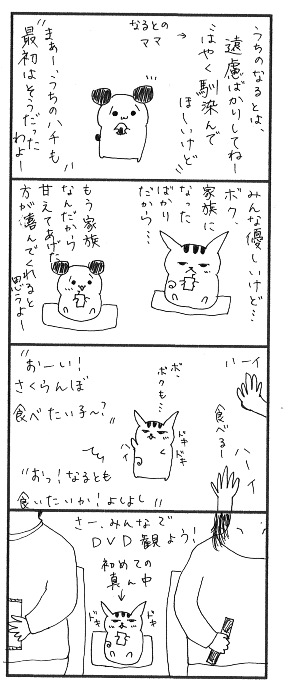 うちのなるとは、
遠慮ばかりしてねー
はやく馴染んで
ほしいけど
なるとの
ママ
まぁー、うちのハチも
最初はそうだった
わよー
みんな優しいけど…
ボク、
家族に
なった
ばかり
だから…
もう家族
なんだから
甘えてあげた
方が喜んでくれると
思うよー
ハーイ
食べるー
ハーイ
ボ、
ボクも…
ドキ
ドキ
ハイ
"おーい!
さくらんぼ
食べたい子〜?"
"おっ!なるとも
食いたいか!よしよし"
さー、みんなで
DVD観よう!
初めての
真ん中
ドキ
ドキ